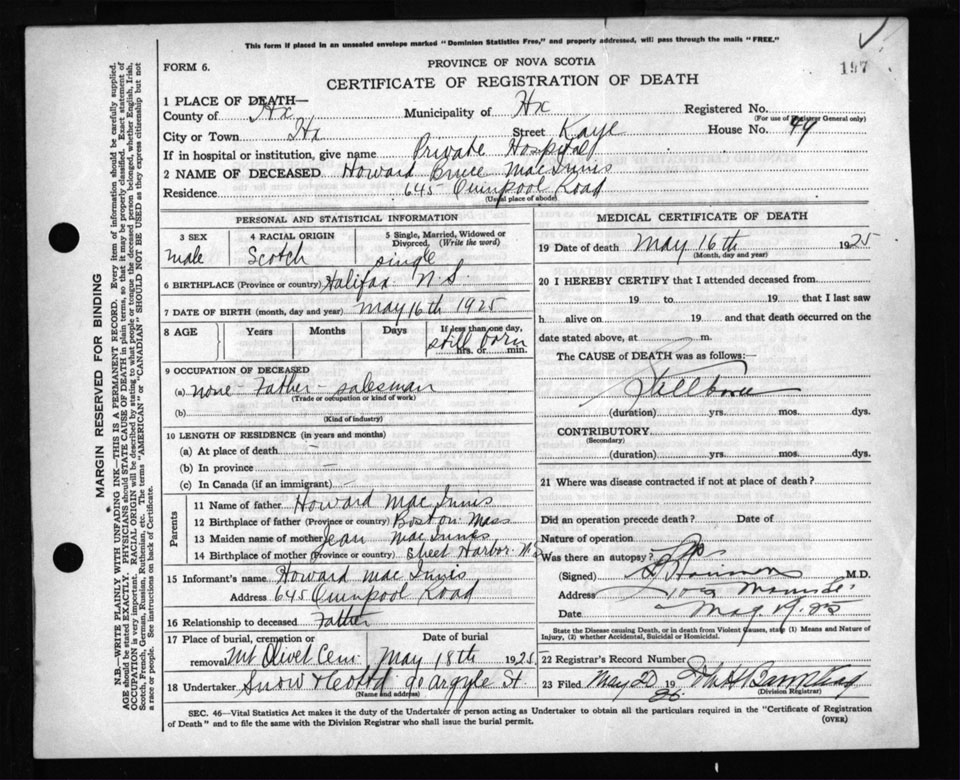 This form if placed in an unsealed envelope marked "Dominion Statistics Free," and properly addressed, will pass through the mails "FREE."
197
FORM 6.
PROVINCE OF NOVA SCOTIA
CERTIFICATE OF REGISTRATION OF DEATH
1 PLACE OF DEATH—
County of Hx Municipality of Hx Registered No.
(For use of Registrar General only)
City or Town Hx Street Kaye House No. 49
If in hospital or institution, give name Private Hospital
2 NAME OF DECEASED Howard Bruce MacInnis
Residence 645 Quinpool Road
(Usual place of abode)
PERSONAL AND STATISTICAL INFORMATION
3 SEX
male
4 RACIAL ORIGIN
Scotch
5 Single, Married, Widowed or Divorced, (Write the word)
single
6 BIRTHPLACE (Province or country) Halifax N.S.
7 DATE OF BIRTH (month, day and year) May 16th 1925
8 AGE Years Months Days If less than one day,
still born
hrs. or min.
9 OCCUPATION OF DECEASED
(a) none - Father - salesman
(Trade or occupation or kind of work)
(b)
(Kind of industry)
10 LENGTH OF RESIDENCE (in years and months)
(a) At place of death —
(b) In province —
(c) In Canada (if an immigrant) —
Parents
11 Name of father Howard MacInnis
12 Birthplace of father (Province or country) Boston Mass
13 Maiden name of mother Jean MacInnis
14 Birthplace of mother (Province or country) Sheet Harbor N.S
15 Informant's name Howard MacInnis
Address 645 Quinpool Road
16 Relationship to deceased Father
17 Place of burial, cremation or removal Mt Olivet Cem.
Date of burial
May 18th 1925
18 Undertaker Snow & Co Ltd Argyle St.
(Name and address)
MEDICAL CERTIFICATE OF DEATH
19 Date of death May 16th 1925
(Month, day and year)
20 I HEREBY CERTIFY that I attended deceased from
19 to 19 that I last saw
h alive on 19 and that death occurred on the
date stated above, at m.
The CAUSE of DEATH was as follows:—
Stillborn
(duration) yrs. mos. dys.
CONTRIBUTORY
(Secondary)
(duration) yrs. mos. dys.
21 Where was disease contracted if not at place of death?
Did an operation precede death? Date of
Nature of operation
Was there an autopsy?
(Signed) M.D.
Address
Date May
State the Disease causing Death, or in death from Violent Causes, state (1) Means and Nature of Injury, (2) whether Accidental, Suicidal or Homicidal.
22 Registrar's Record Number
23 Filed May 20 19
(Division Registrar)
SEC. 46—Vital Statistics Act makes it the duty of the Undertaker or person acting as Undertaker to obtain all the particulars required in the "Certificate of Registration of Death" and to file the same with the Division Registrar who shall issue the burial permit.
(OVER)
MARGIN RESERVED FOR BINDING
N.B.—WRITE PLAINLY WITH UNFADING INK—THIS IS A PERMANENT RECORD. Every item of information should be carefully supplied.
AGE should be stated EXACTLY. PHYSICIANS should STATE CAUSE OF DEATH in plain terms, so that it may be properly classified. Exact statement of
OCCUPATION is very important. RACIAL ORIGIN will be described by stating to what people or tongue the deceased person belonged, whether English, Irish,
Scotch, French, German, Russian, Ruthenian, etc. The terms "AMERICAN" or "CANADIAN" SHOULD NOT BE USED as they express citizenship but not
a race or people. See instructions on back of Certificate.